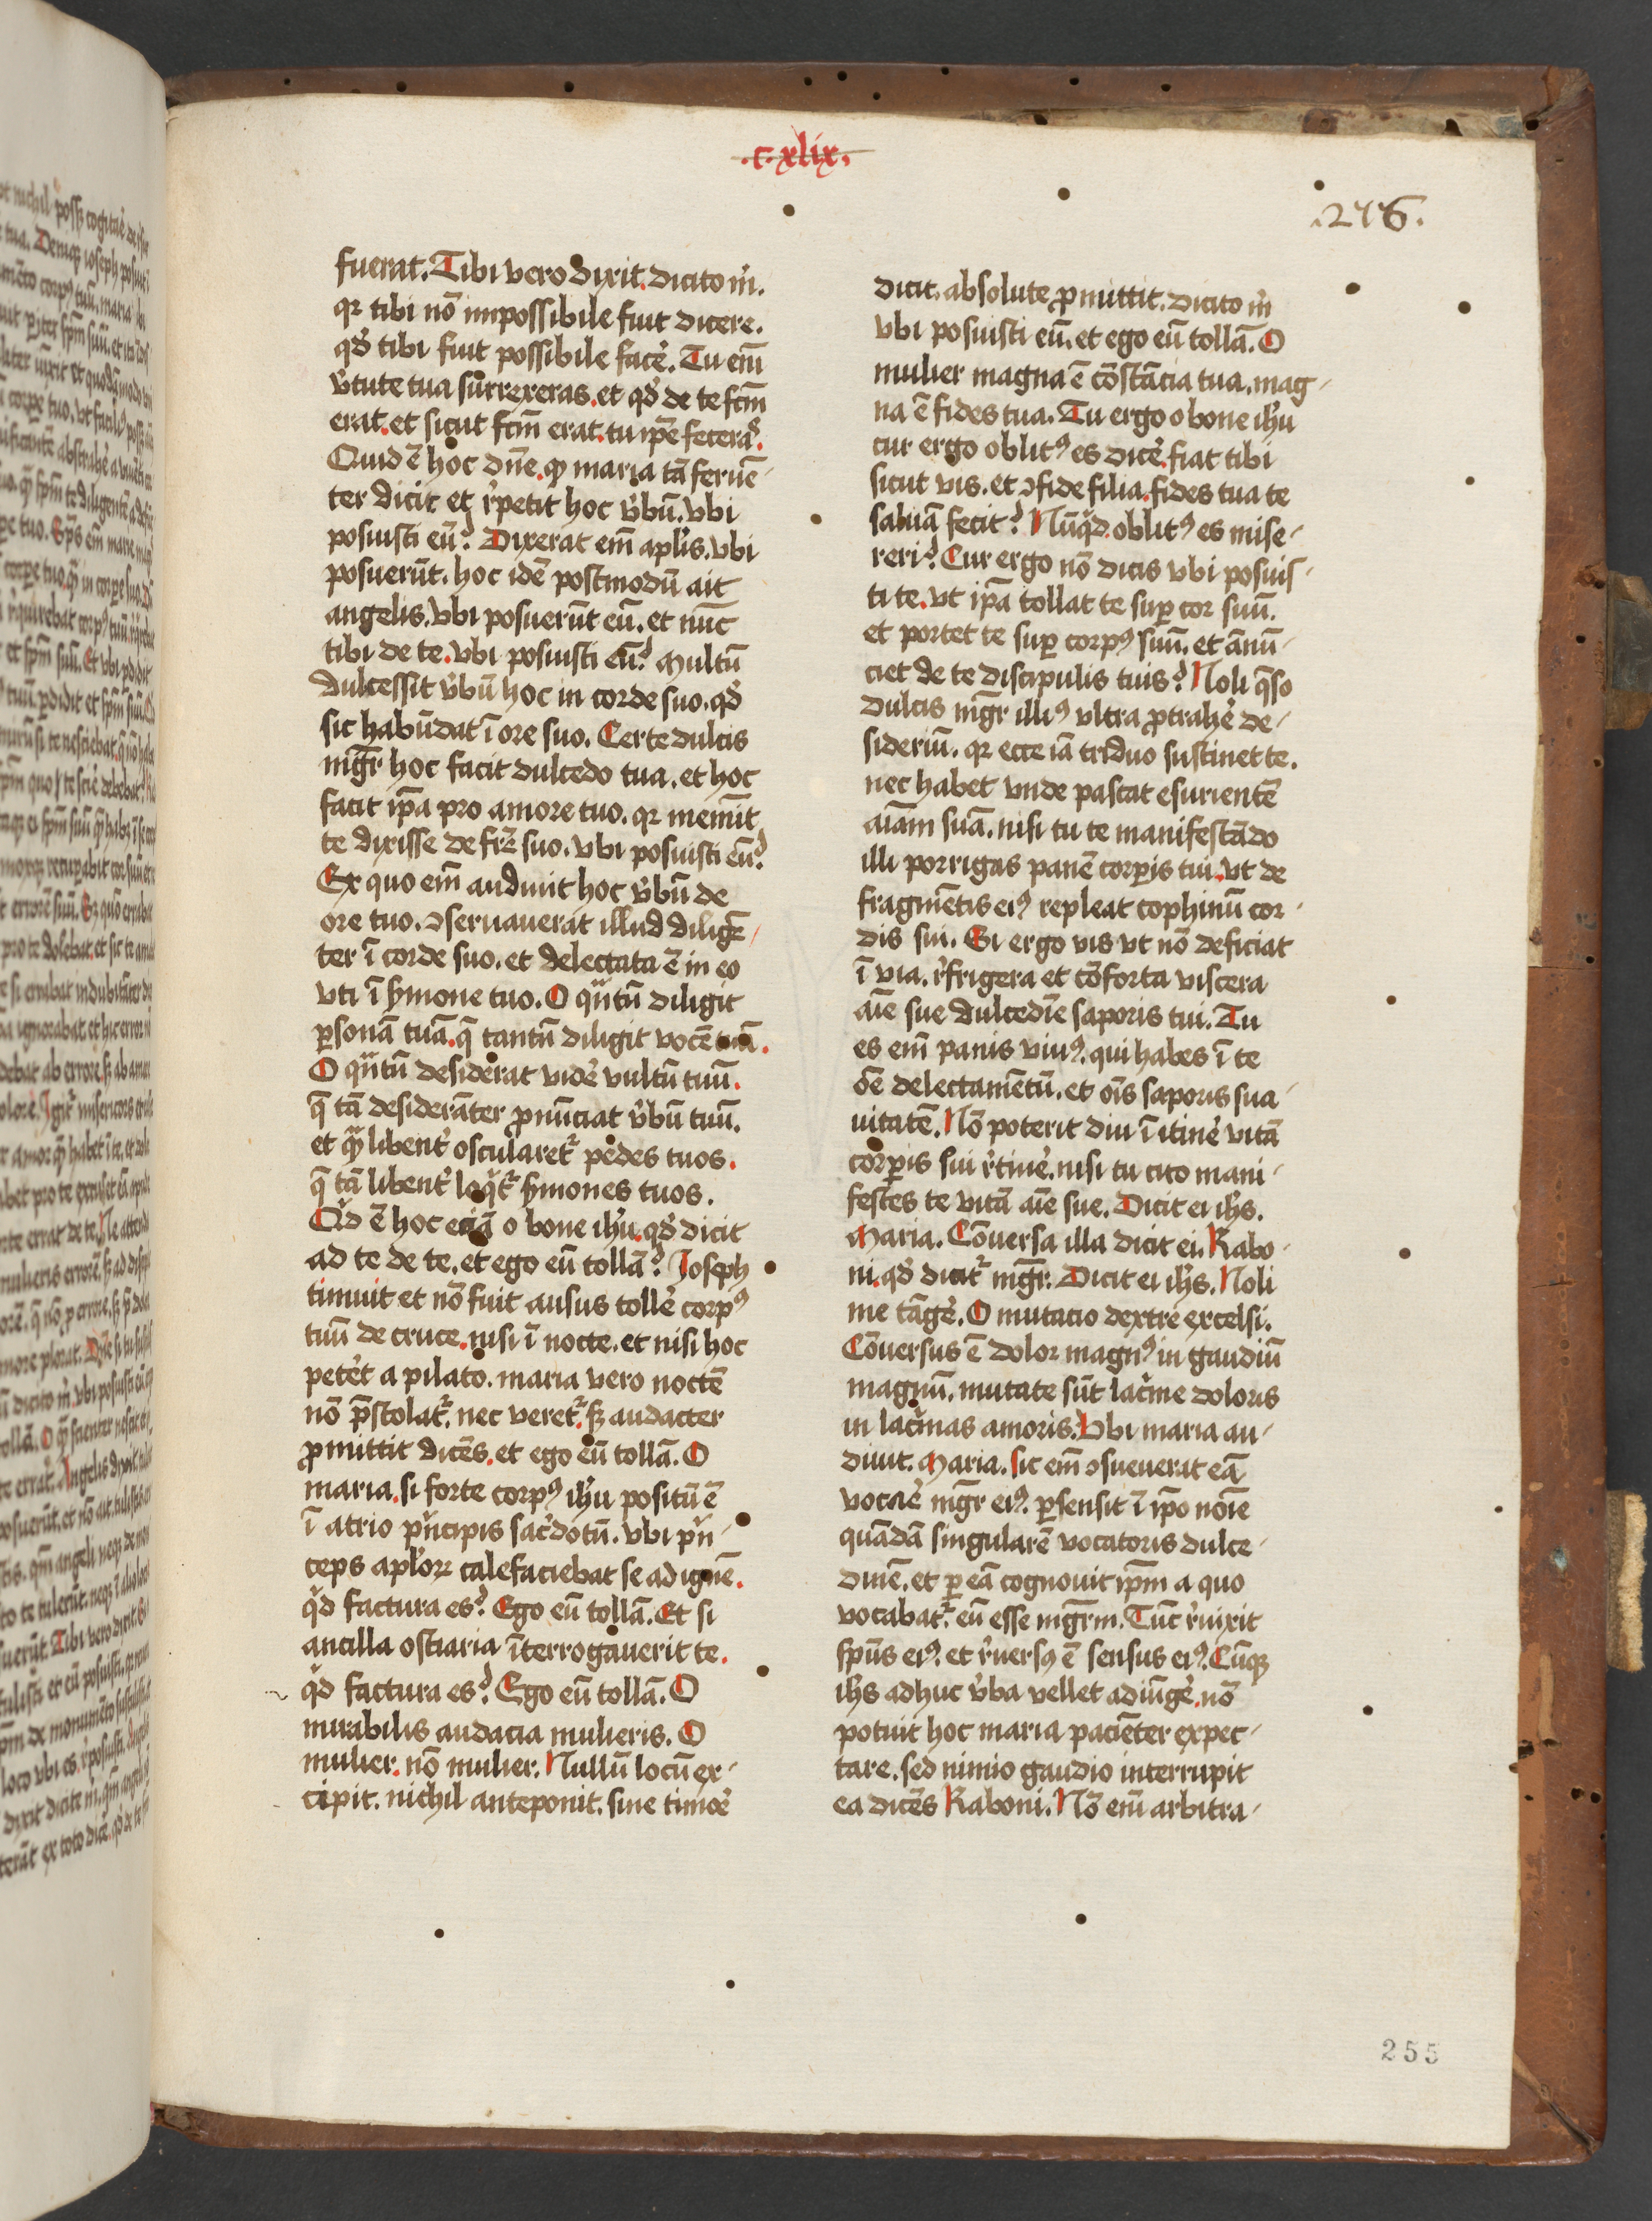 .c.xlix.
.276.
fuerat. Tibi vero dixit. dicito m̊.
qr tibi nō impossibile fuit dicere.
qd̓ tibi fuit possibile facē. Tu em̄
v̓tute tua surrexeras. et qd̓ de te fcm̄
erat. et sicut fcm̄ erat. tu ip̄e feceras.
Quid ē hoc dn̄e. ꝙ maria tā feruē-
ter dicit et r̓petit hoc v̓bū. vbi
posuisti eū? Dixerat em̄ apl̓is. vbi
posuerūt. hoc idē postmodū ait
angelis. vbi posuerūt eū. et nūc
tibi de te. vbi posuisti eū? Multū
dulcessit v̓bū hoc in corde suo. qd̓
sic habūdat ī ore suo. Certe dulcis
mgr̄ hoc facit dulcedo tua. et hoc
facit ip̄a pro amore tuo. qr memīt
te dixisse de fr̄e suo. vbi posuisti eū?
Ex quo em̄ audiuit hoc v̓bū de
ore tuo. ɔseruauerat illud diligē-
ter ī corde suo. et delectata ē in eo
vti ī s̓mone tuo. O qͣntū diligit
ꝑsonā tuā. q̄ tantū diligit vocē tuā.
O qͣntū desiderat vidē vultū tuū.
q̄ tā desiderāter ꝓnūciat v̓bū tuū.
et qͣ libent̓ oscularet᷑ pedes tuos.
q̄ tā libent̓ loqͥt᷑ s̓mones tuos.
Qͥd ē hoc eciā o bone ih̓u. qd̓ dicit
ad te de te. et ego eū tollā? Joseph
timuit et nō fuit ausus tollē corpꝰ
tuū de cruce. nisi ī nocte. et nisi hoc
petēt a pilato. maria vero noctē
nō p̄stolat᷑. nec veret᷑. sꝫ audacter
ꝓmittit dicēs. et ego eū tollā. O
maria. si forte corpꝰ ih̓u positū ē
ī atrio pͥncipis sac̓dotū. vbi pͥn-
ceps apl̓oꝝ calefaciebat se ad ignē.
qͥd factura es? Ego eū tollā. Et si
ancilla ostiaria īterrogauerit te.
qͥd factura es? Ego eū tollā. O
mirabilis audacia mulieris. O
mulier. nō mulier. Nullū locū ex-
cipit. nichil anteponit. sine timoē
dicit. absolute ꝓmittit. dicito m̊
vbi posuisti eū. et ego eū tollā. O
mulier magna ē cōstācia tua. mag-
na ē fides tua. Tu ergo o bone ih̓u
cur ergo oblitꝰ es dicē. fiat tibi
sicut vis. et ɔfide filia. fides tua te
saluā fecit? Nūqͥd oblitꝰ es mise-
reri? Cur ergo nō dicis vbi posuis-
ti te. vt ip̄a tollat te suꝑ cor suū.
et portet te suꝑ corpꝰ suū. et ānū-
ciet de te discipulis tuis? Noli q̄so
dulcis mgr̄ illiꝰ vltra ꝓtrahē de-
sideriū. qr ecce iā triduo sustinet te.
nec habet vnde pascat esurientē
aīam suā. nisi tu te manifestādo
illi porrigas panē corꝑis tui. vt de
fragmētis eiꝰ repleat cophinū cor-
dis sui. Si ergo vis vt nō deficiat
ī via. r̓frigera et cōforta viscera
aīe sue dulcedīe saporis tui. Tu
es em̄ panis viuꝰ. qui habes ī te
ōe delectamētū. et oīs saporis sua-
uitatē. Nō poterit diu ī itinē vitā
corꝑis sui r̓tinē. nisi tu cito mani-
festes te vitā aīe sue. Dicit ei ih̓s.
Maria. Cōuersa illa dicit ei. Rabo-
ni. qd̓ dicit᷑ mgr̄. Dicit ei ih̓s. Noli
me tāgē. O mutacio dextre excelsi.
Cōuersus ē dolor magnꝰ in gaudiū
magnū. mutate sūt lacͥme doloris
in lacͥmas amoris. Vbi maria au-
diuit. Maria. sic em̄ ɔsueuerat eā
vocaē mgr̄ eiꝰ. ꝑsensit ī ip̄o noīe
quādā singularē vocatoris dulce-
dinē. et ꝑ eā cognouit ip̄m a quo
vocabat᷑. eū esse mgr̄m. Tūc r̓uixit
sp̄us eiꝰ. et r̓uersꝰ ē sensus eiꝰ. Cūqꝫ
ih̓s adhuc v̓ba vellet adiūgē. nō
potuit hoc maria paciēter expec-
tare. sed nimio gaudio interrupit
ea dicēs Raboni. Nō em̄ arbitra-
255